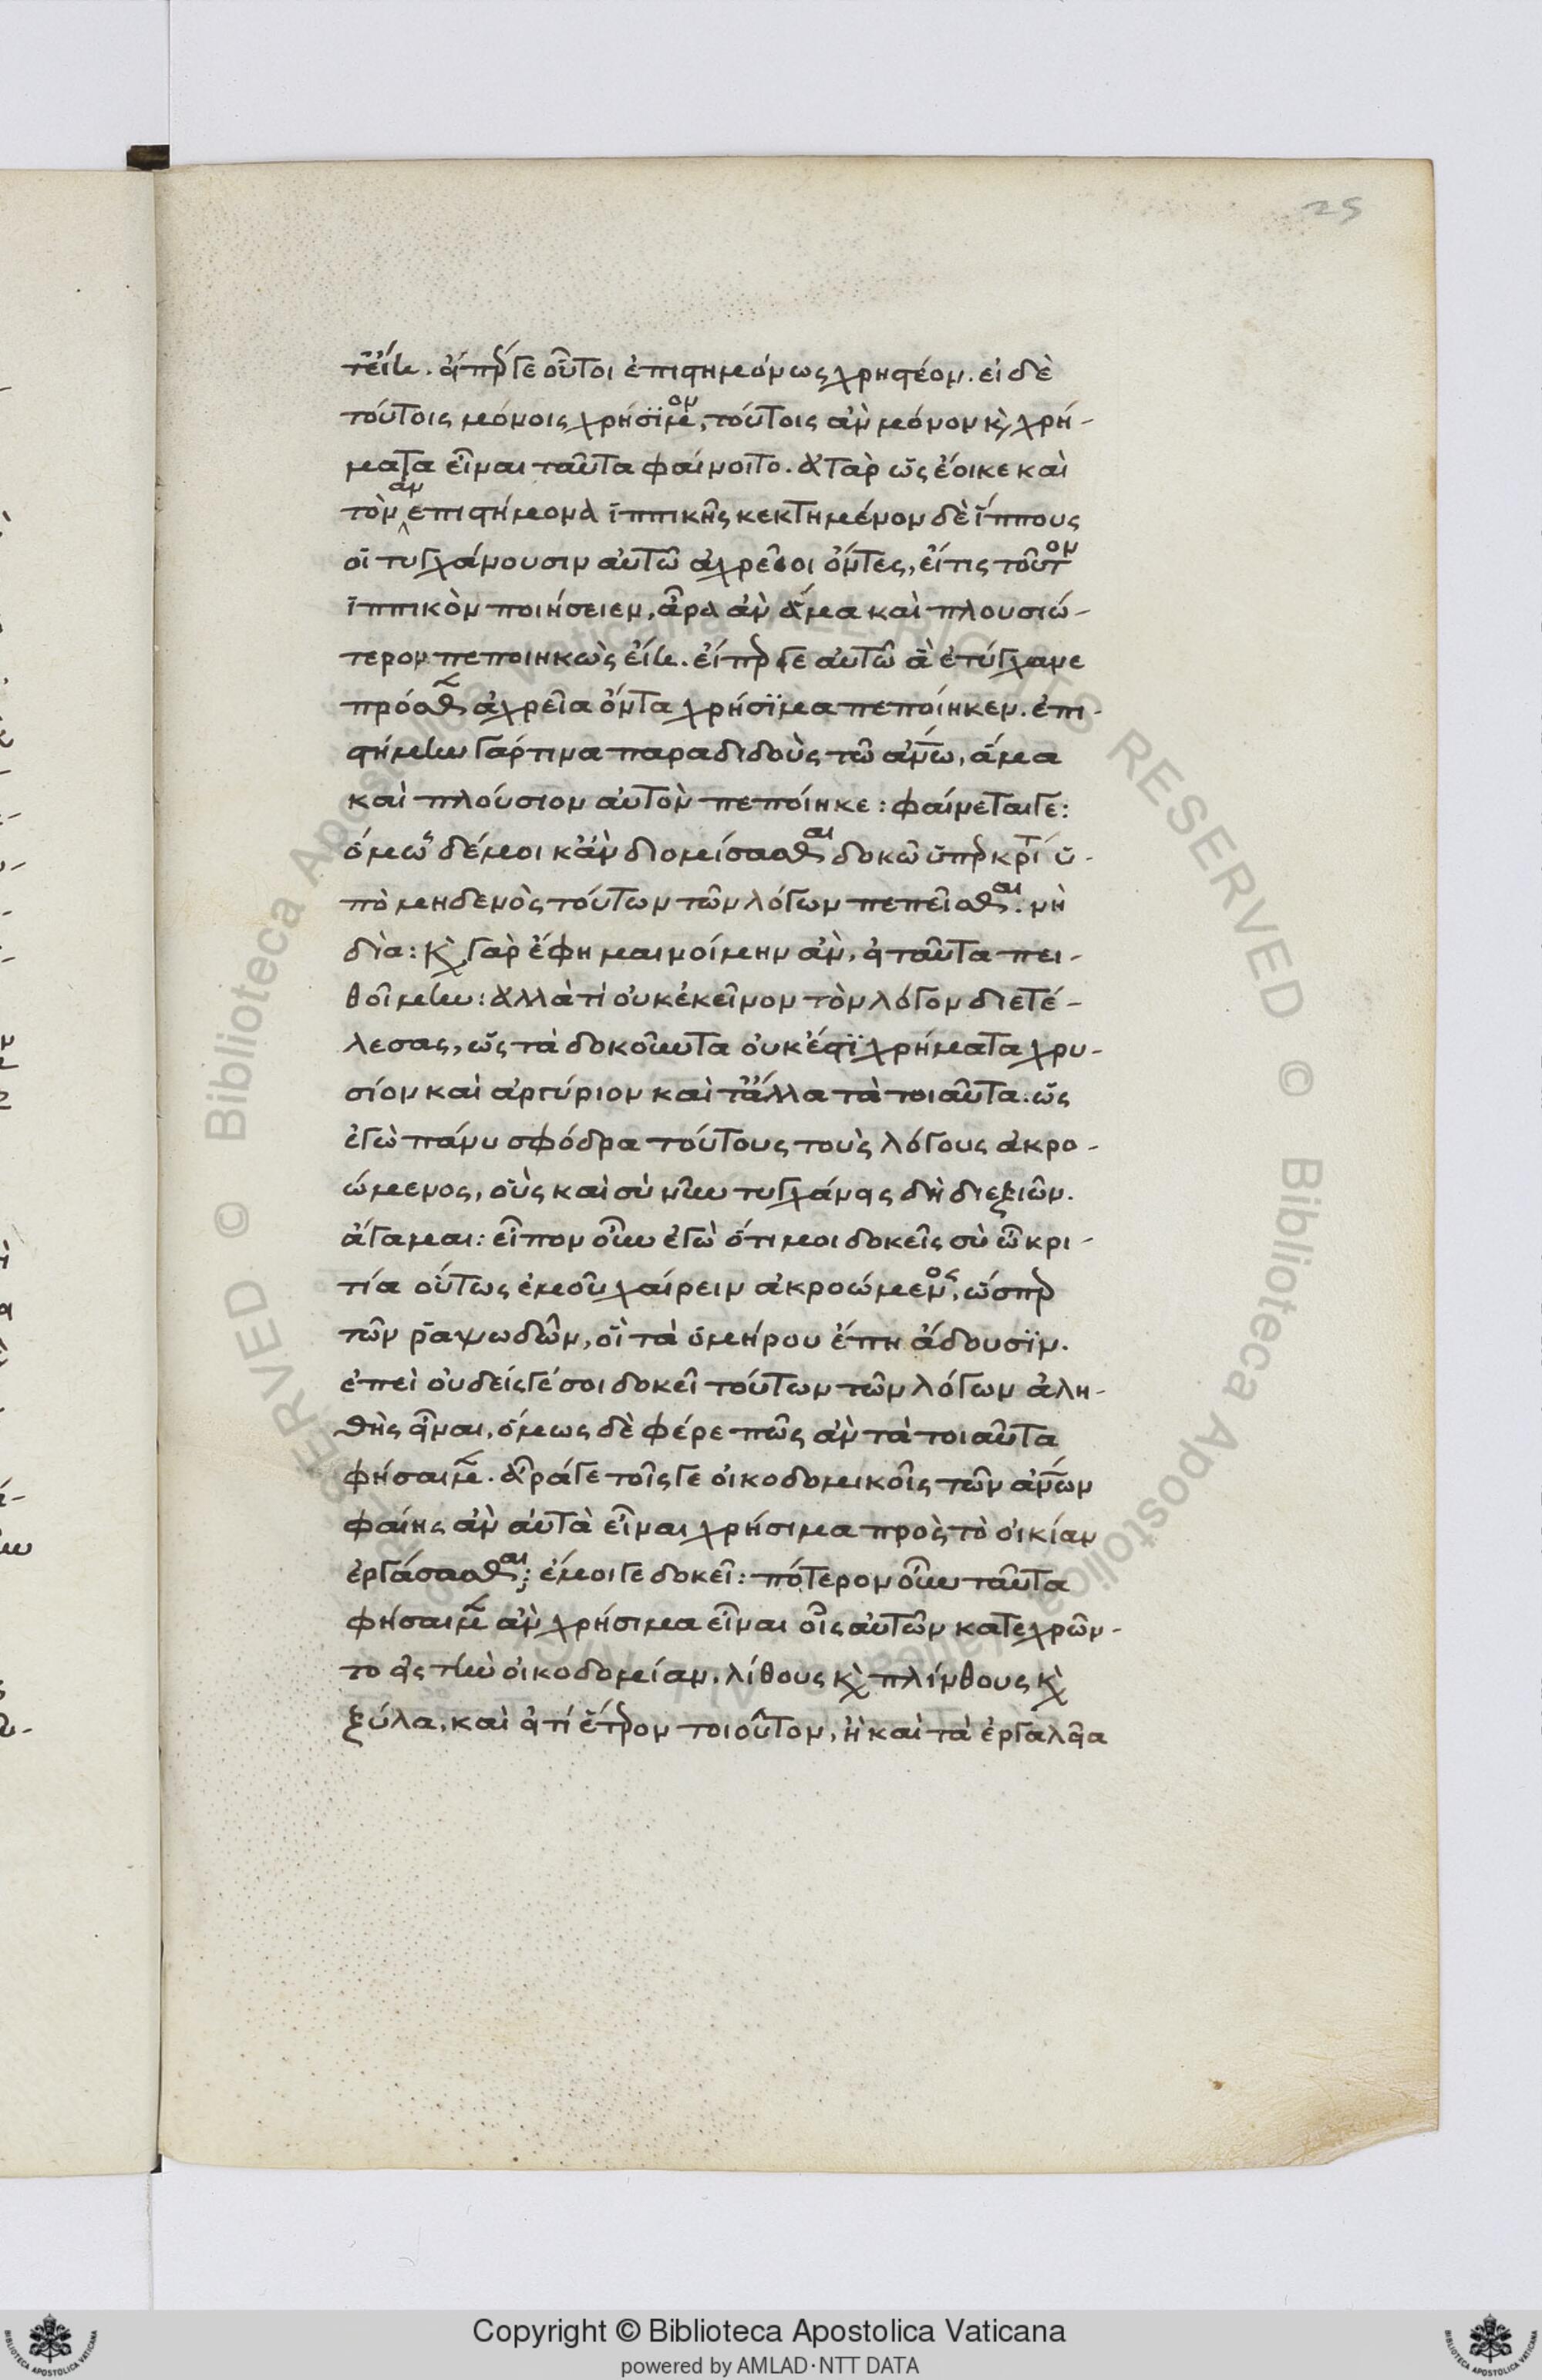 25
τἐίη. ἅπρ γε οὗτοι ἐπιστημόνως χρηστέον. εἰ δὲ
τούτοις μόνοις χρήσιμον, τούτοις ἂν μόνον κ χρή-
ματα εἶναι ταῦτα φαίνοιτο. ἀτὰρ ὡς ἔοικε καὶ
τὸν ἀνεπιστήμονα ἱππικῆς κεκτημένον δὲ ἵππους
οἳ τυγχάνουσιν αὐτῶ ἀχρεῖοι ὄντες, εἴτις τοῦτον
ἱππικὸν ποιήσειεν, ἆρα ἂν ἅμα καὶ πλουσιώ-
τερον πεποιηκὼς εἴη. εἴπρ γε αὐτῶ ἃ ἐτύγχανε
πρόσθεν ἀχρεῖα ὄντα χρήσιμα πεποίηκεν. ἐπι-
στήμην γάρ τινα παραδιδοὺς τῶ ἀνω, ἅμα
καὶ πλούσιον αὐτὸν πεποίηκε: φαίνεταιγε:
ὅμως δέμοι κἂν διομόσασθαι δοκῶ ὑπὲρ κριτί ὑ-
πὸ μηδενὸς τούτων τῶν λόγων πεπεῖσθαι. μὴ
δία: κ γὰρ ἔφη μαινοίμην ἂν, εἰ ταῦτα πει-
θοίμην: ἀλλὰ τί οὐκ ἐκεῖνον τὸν λόγον διετέ-
λεσας, ὡς τὰ δοκοῦντα οὐκ ἔστι χρήματα χρυ-
σίον καὶ ἀργύριον καὶ τἄλλα τὰ τοιαῦτα. ὡς
ἐγὼ πάνυ σφόδρα τούτους τοὺς λόγους ἀκρο-
ώμενος, οὓς καὶ σὺ νῦν τυγχάνεις δὴ διεξιῶν.
ἄγαμαι: εἶπον οὖν ἐγὼ ὅτι μοι δοκεῖς σὺ ὦ κρι-
τία οὕτως ἐμοῦ χαίρειν ἀκροώμενος, ὥσπρ
τῶν ῥαψωδῶν, οἳ τὰ ὁμήρου ἔπη ἄδουσιν.
ἐπεὶ οὐδείς γέ σοι δοκεῖ τούτων τῶν λόγων ἀλη-
θὴς εἶναι. ὅμως δὲ φέρε πῶς ἂν τὰ τοιαῦτα
φήσαιμεν. ἆρά γε τοῖς γε οἰκοδομικοῖς τῶν ἀνων
φαίης ἂν αὐτὰ εἶναι χρήσιμα πρὸς τὸ οἰκίαν
ἐργάσασθαι; ἔμοιγε δοκεῖ: πότερον οὖν ταῦτα
φήσαιμεν ἂν χρήσιμα εἶναι οἷς αὐτῶν κατεχρῶν-
το εἰς τὴν οἰκοδομείαν, λίθους κ πλίνθους κ
ξύλα, καὶ εἰ τί ἕτερον τοιοῦτον, ἢ καὶ τὰ ἐργαλεῖα
Copyright © Biblioteca Apostolica Vaticana
powered by AMLAD·NTT DATA